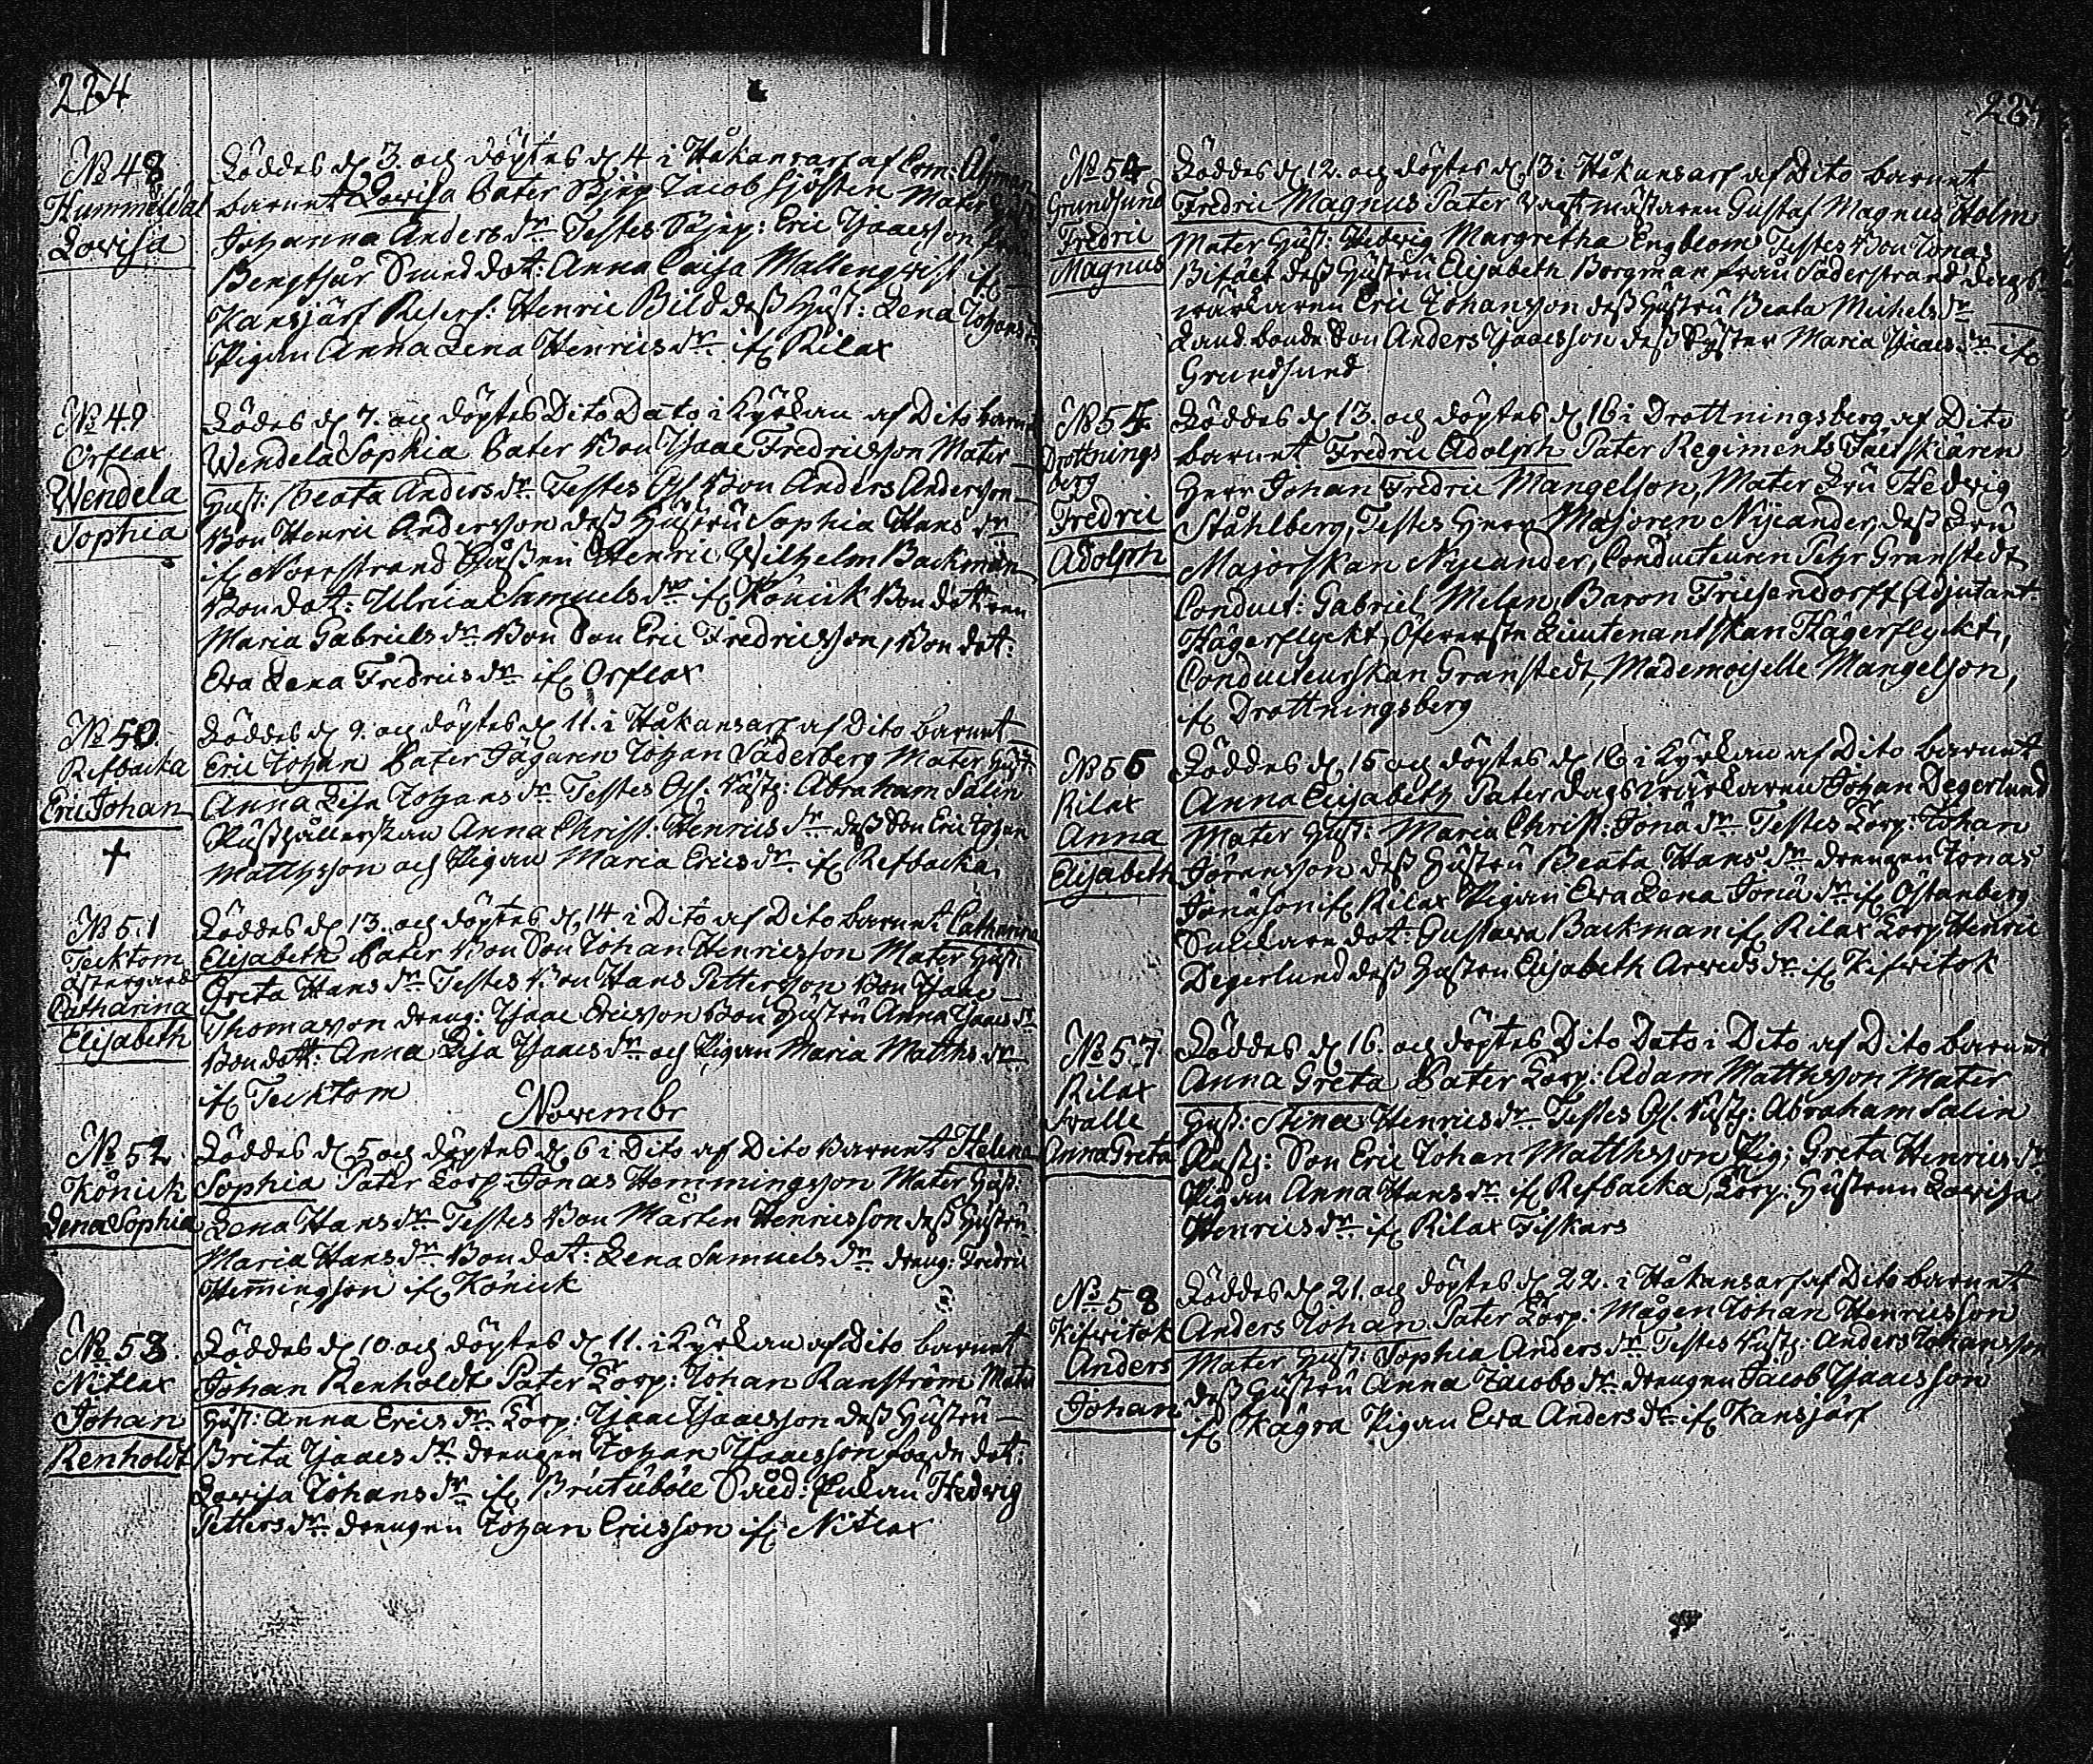 224
No 48
Hummeldal
Lovisa
Föddes d 3. och döptes d 4 i Håkansarf af Com: Ahman
barnet Lovisa Pater Skjep Jacob Sjösten Mater
Johanna Anders dr Testes Skjep: Eric Isacsson
Bengtsår Smed dot: Anna Caisa Mallenqvist if
Kansjärf Reserf: Henric Bild dess Hust: Lena Johans
Pigan Anna Lena Henrics dr if Rilax
No 49
Orflax
Wendela
Sophia
Födes d 7. och döptes Dito Dato i Kyrkan af Dito barnet
Wendela Sophia Pater Bon Isaac Fredricsson Mater
Hust: Beata Anders dr Testes Gl. Bon Anders Andersson
Bon Henric Andersson dess Hustru Sophia Hans dr
if Norrstrand Henric Wilhelm Backman
Bon dot: Ulrica Samuels dr if Könick Bon dotren
Maria Gabriels dr Bon Son Eric Fredricsson, Bon dot:
Eva Lena Fredrics dr if Orflax
No 50.
Refbacka
Eric Johan
+
Föddes d 9. och döptes d 11. i Håkansarf af Dito barnet
Eric Johan Pater Jägaren Johan Söderberg Mater Hust:
Anna Lisa Johans dr Testes Gl. Rusth: Abraham Salin
Rusthållerskan Anna Christ: Henrics dr dess Son Eric Johan
Matthsson och Pigan Maria Erics dr if Refbacka
No 51
Tecktom
östergård
Catharina
Elisabeth
Föddes d 13. och döptes d 14 i Dito af Dito barnet Catharina
Elisabeth Pater Bon Son Johan Henricsson Mater Hust:
Greta Hans dr Testes Bon Hans Pettersson Bon Isaac
Thomasson dreng: Isaac Ericsson Bon Hustru Anna Isaacs dr
Bon dott: Anna Lisa Isaacs dr och Pigan Maria Matths dr
if Tecktom
Novembr
No 52
Könick
Lena Sophia
Föddes d 5 och döptes d 6 i Dito af Dito Barnet Helena
Sophia Pater Torp: Jonas Hemmingsson Mater Hust:
Lena Hans dr Testes Bon Mårten Henricsson dess Hustru
Maria Hans dr Bon dot: Lena Samuels dr dreng: Fredric
Hemingson if Könick
No 53.
Nitlax
Johan
Renholdt
Föddes d 10. och döptes d 11. i Kyrkan af Dito barnet
Johan Renholdt Pater Torp: Johan Ranström Mater
Hust: Anna Erics dr Torp: Isaac Isaacsson dess Hustru
Brita Isaacs dr drengen Johan Isaacsson dot:
Lovisa Johans dr if Brutuböle Hedvig
Petters dr drengen Johan Ericsson if Nitlax
No 54
Grundsund
Fredric
Magnus
Föddes d 12. och döptes d 13 i Håkansarf af Dito barnet
Fredric Magnus Pater Vagtmästaren Gustaf Magnus Holm
Mater Hust: Hedvig Margretha Engblom Testes Bon Jonas
dess Hustru Elisabeth Borgman från Söderstrand dags
wärkaren Eric Johansson dess Hustru Beata Michels dr
Landbonde Son Anders Isaacsson dess Syster Maria Isaacs dr if
Grundsund
No 55.
Drottnings
berg
Fredric
Adolph
Föddes d 13. och döptes d 16 i Drottningsberg af Dito
barnet Fredric Adolph Pater Regiments Fältskiären
Herr Johan Fredric Mangelson, Mater Fru Hedvig
Ståhlberg, Testes Herr Majoren Nycander, dess Fru
Majorskan Nycander, Conducteuren Petr Granstedt
Conduct: Gabriel Melan, Baron Friesendorff, Adjutant
Hägerflyckt, Öfverste Lieutenantskan Hägerflyckt,
Conducteurskan Granstedt, Mademoiselle Mangelson,
if Drottningsberg
No 56
Rilax
Anna
Elisabeth
Föddes d 15 och döptes d 16 i Kyrkan af Dito barnet
Anna Elisabeth Pater Dagswärkaren Johan Degerlund
Mater Hust: Maria Christ: Jona dr Testes Torp: Johan
Göransson dess Hustru Beata Hans dr drengen Jonas
Jonason if Rilax Pigan Eva Lena Jona dr if Östanberg
dot: Gustava Backman if Rilax Torp: Henric
Degerlund dess Hustru Elisabeth Arvids dr if Kifvitok
No 57.
Rilax
Svalle
Anna Greta
Föddes d 16. och döptes Dito Dato i Dito af Dito barnet
Anna Greta Pater Torp: Adam Matthsson Mater
Hust: Stina Henrics dr Testes Gl. Rusth: Abraham Salin
Rusth: Son Eric Johan Matthsson Pig: Greta Henrics dr
Pigan Anna Hans dr if Refbacka, Torp: Hustrun Lovisa
Henrics dr if Rilax Fiskars
No 58
Kifvitok
Anders
Johan
Föddes d 21. och döptes d 22. i Håkansarf af Dito barnet
Anders Johan Pater Torp: Mågen Johan Henricsson
Mater Hust: Sophia Anders dr Testes Rusth: Anders Johansson
dess Hustru Anna Jacobs dr drengen Jacob Isaacsson
if Kägra Pigan Eva Anders dr if Kansjärf